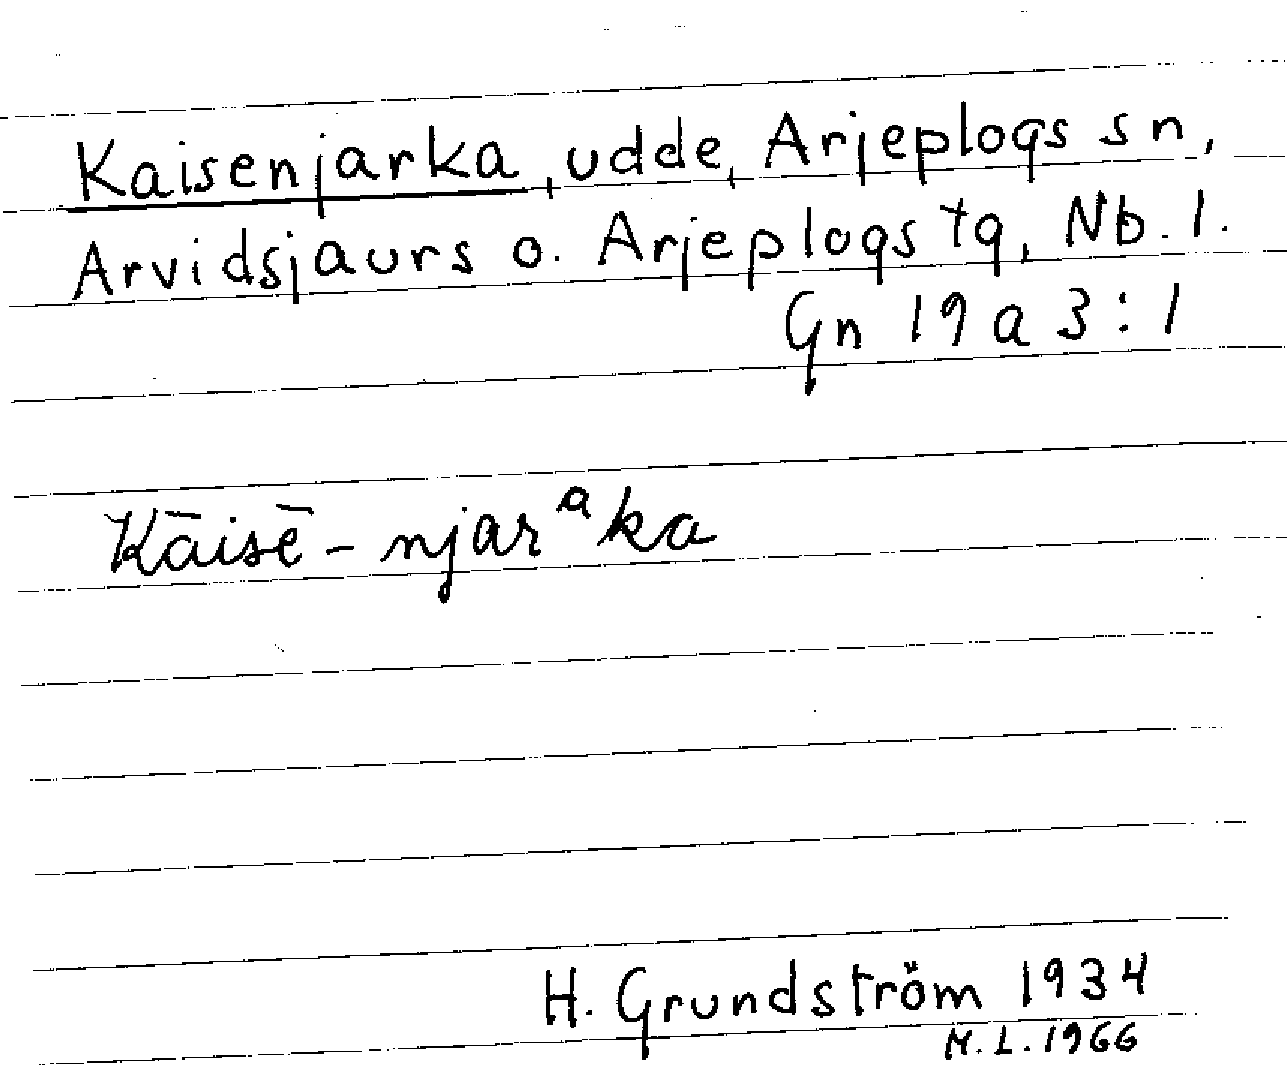 Kaisenjarka, udde, Arjeplogs sn,
Arvidsjaurs o. Arjeplogs tg, Nb. l.
Gn 19 a 3:1
Kāisē-njarᵃka
H. Grundström 1934
M.L. 1966